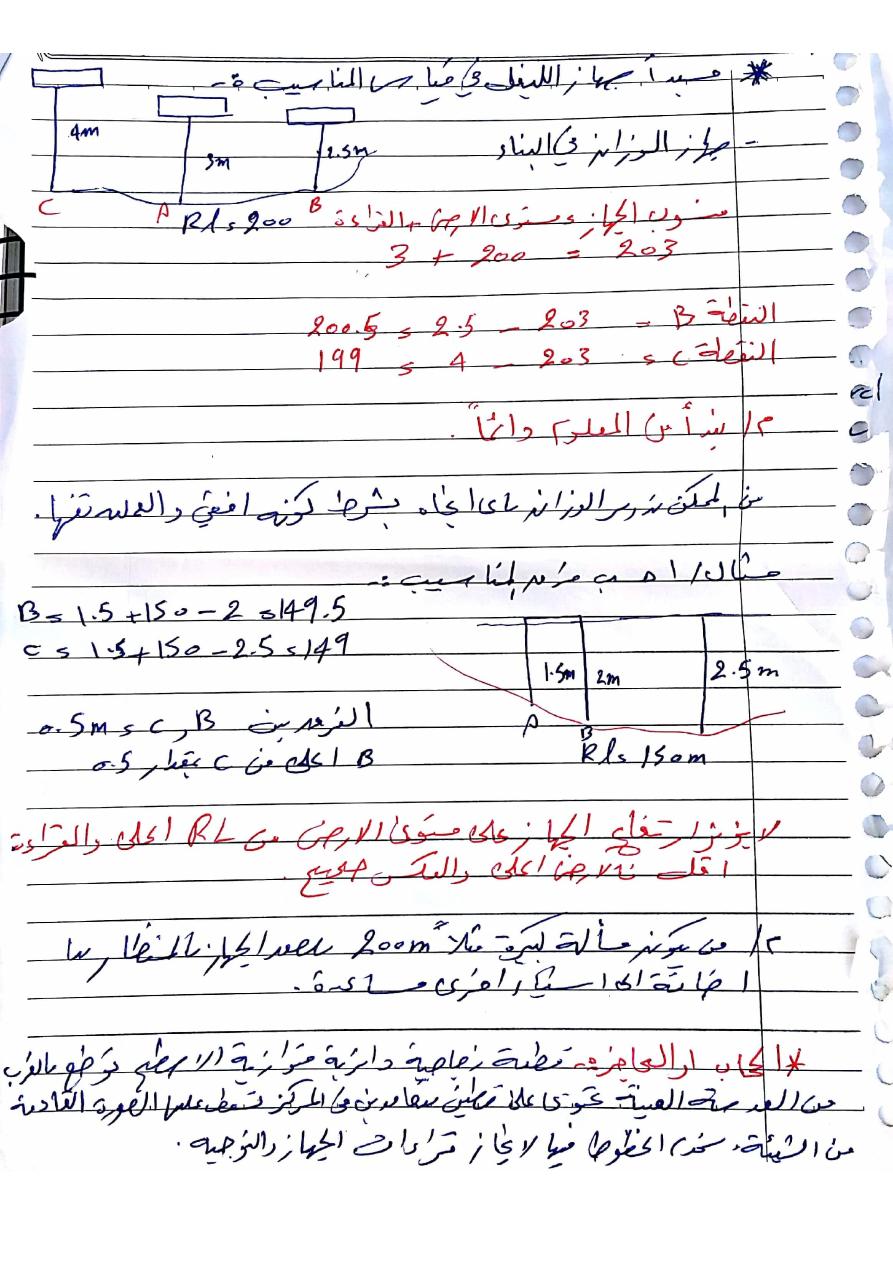 * مبدأ جهاز الليفل في قياس المناسيب :-
4m
3m
2.5m
- جهاز الوزان في البناء
C A Rl = 200 B
منسوب الجهاز = مستوى الارض + القراءة
3 + 200 = 203
النقطة B = 203 - 2.5 = 200.5
النقطة C = 203 - 4 = 199
م/ نبدأ من المعلوم دائماً .
من الممكن تدوير الوزان باي اتجاه بشرط كونه افقي والعدسه نفسها.
مثال/ احسب فرق المناسيب :-
B = 1.5 + 150 - 2 = 149.5
C = 1.5 + 150 - 2.5 = 149
1.5m 2m 2.5m
A B
Rl = 150m
الفرق بين B و C = 0.5m
B اعلى من C بمقدار 0.5
لا يؤثر ارتفاع الجهاز على مستوى الارض من RL اعلى والقراءة
اقل الارض اعلى والعكس صحيح .
م/ من يكون مسألة كبيرة مثلاً "200m الجهاز بالمنظار
اضافة الى اخرى مساعدة .
* الحجاب او الحاجز :- قطعة زجاجية دائرية متوازية الاسطح توضع بالقرب
من العدسة العينية تحتوى على متعامدين في المركز تسقط عليها الصورة القادمة
من الشيئية، الخطوط فيها لانجاز قراءات الجهاز والتوجيه .